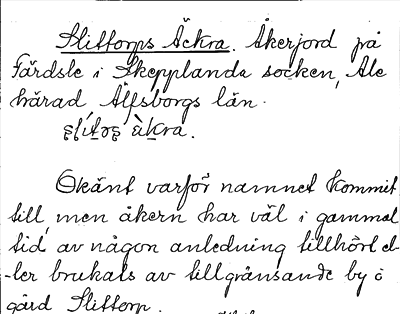 Slittorps Äckra. Åkerjord på
Färdsle i Skepplanda socken, Ale
härad Älfsborgs län.
àkra.
Okänt varför namnet kommit
till, men åkern har väl i gammal
tid av någon anledning tillhört el-
-ler brukats av tillgränsande by o
gård Slittorp.